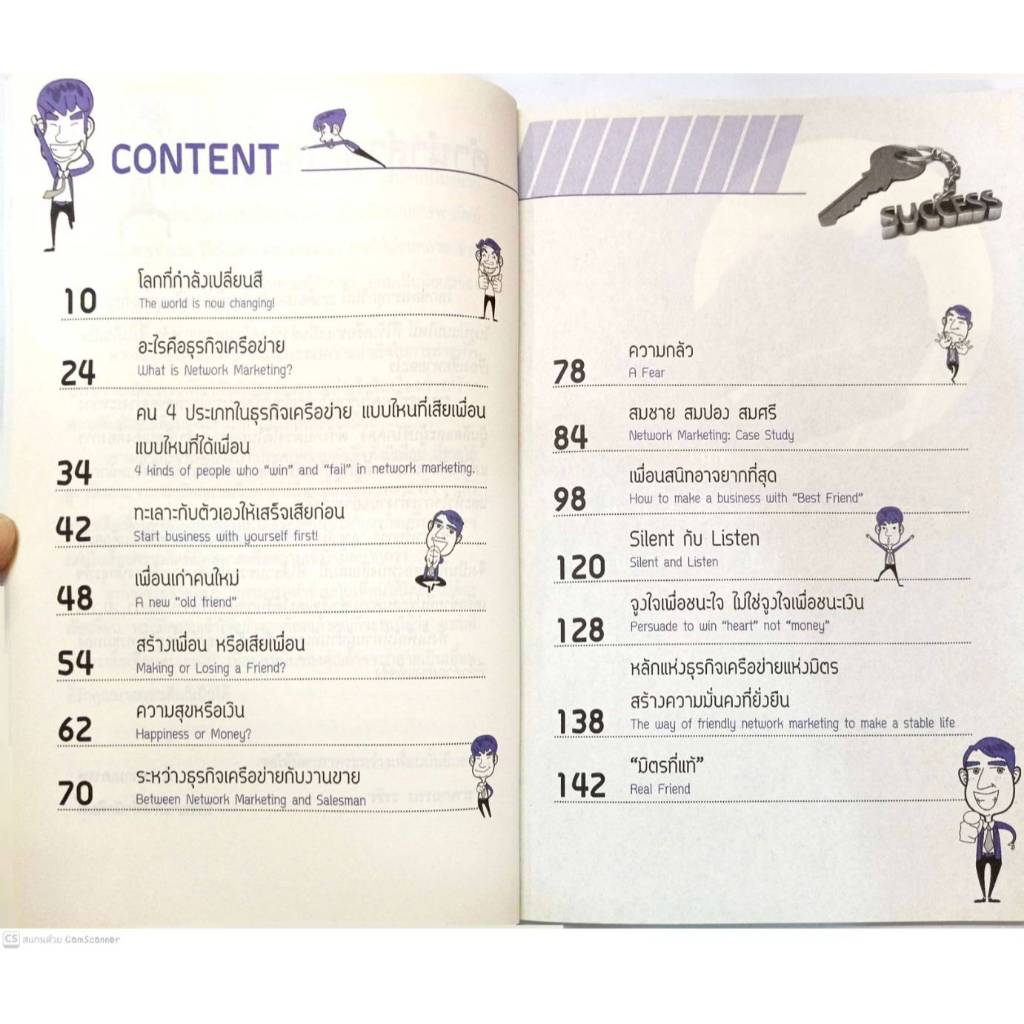 CONTENT
โลกที่กำลังเปลี่ยนสี
10
The world is now changing!
อะไรคือธุรกิจเครือข่าย
24
What is Network Marketing?
คน 4 ประเภทในธุรกิจเครือข่าย แบบไหนที่เสียเพื่อน
แบบไหนที่ได้เพื่อน
34
4 kinds of people who "win" and "fail" in network marketing.
ทะเลาะกับตัวเองให้เสร็จเสียก่อน
42
Start business with yourself first!
เพื่อนเก่าคนใหม่
48
A new "old friend"
สร้างเพื่อน หรือเสียเพื่อน
54
Making or Losing a Friend?
ความสุขหรือเงิน
62
Happiness or Money?
ระหว่างธุรกิจเครือข่ายกับงานขาย
70
Between Network Marketing and Salesman
SUCCESS
ความกลัว
78
A Fear
สมชาย สมปอง สมศรี
84
Network Marketing: Case Study
เพื่อนสนิทอาจยากที่สุด
98
How to make a business with "Best Friend"
Silent กับ Listen
120
Silent and Listen
จูงใจเพื่อชนะใจ ไม่ใช่จูงใจเพื่อชนะเงิน
128
Persuade to win "heart" not "money"
หลักแห่งธุรกิจเครือข่ายแห่งมิตร
สร้างความมั่นคงที่ยั่งยืน
138
The way of friendly network marketing to make a stable life
"มิตรที่แท้"
142
Real Friend
CS สแกนด้วย CamScanner